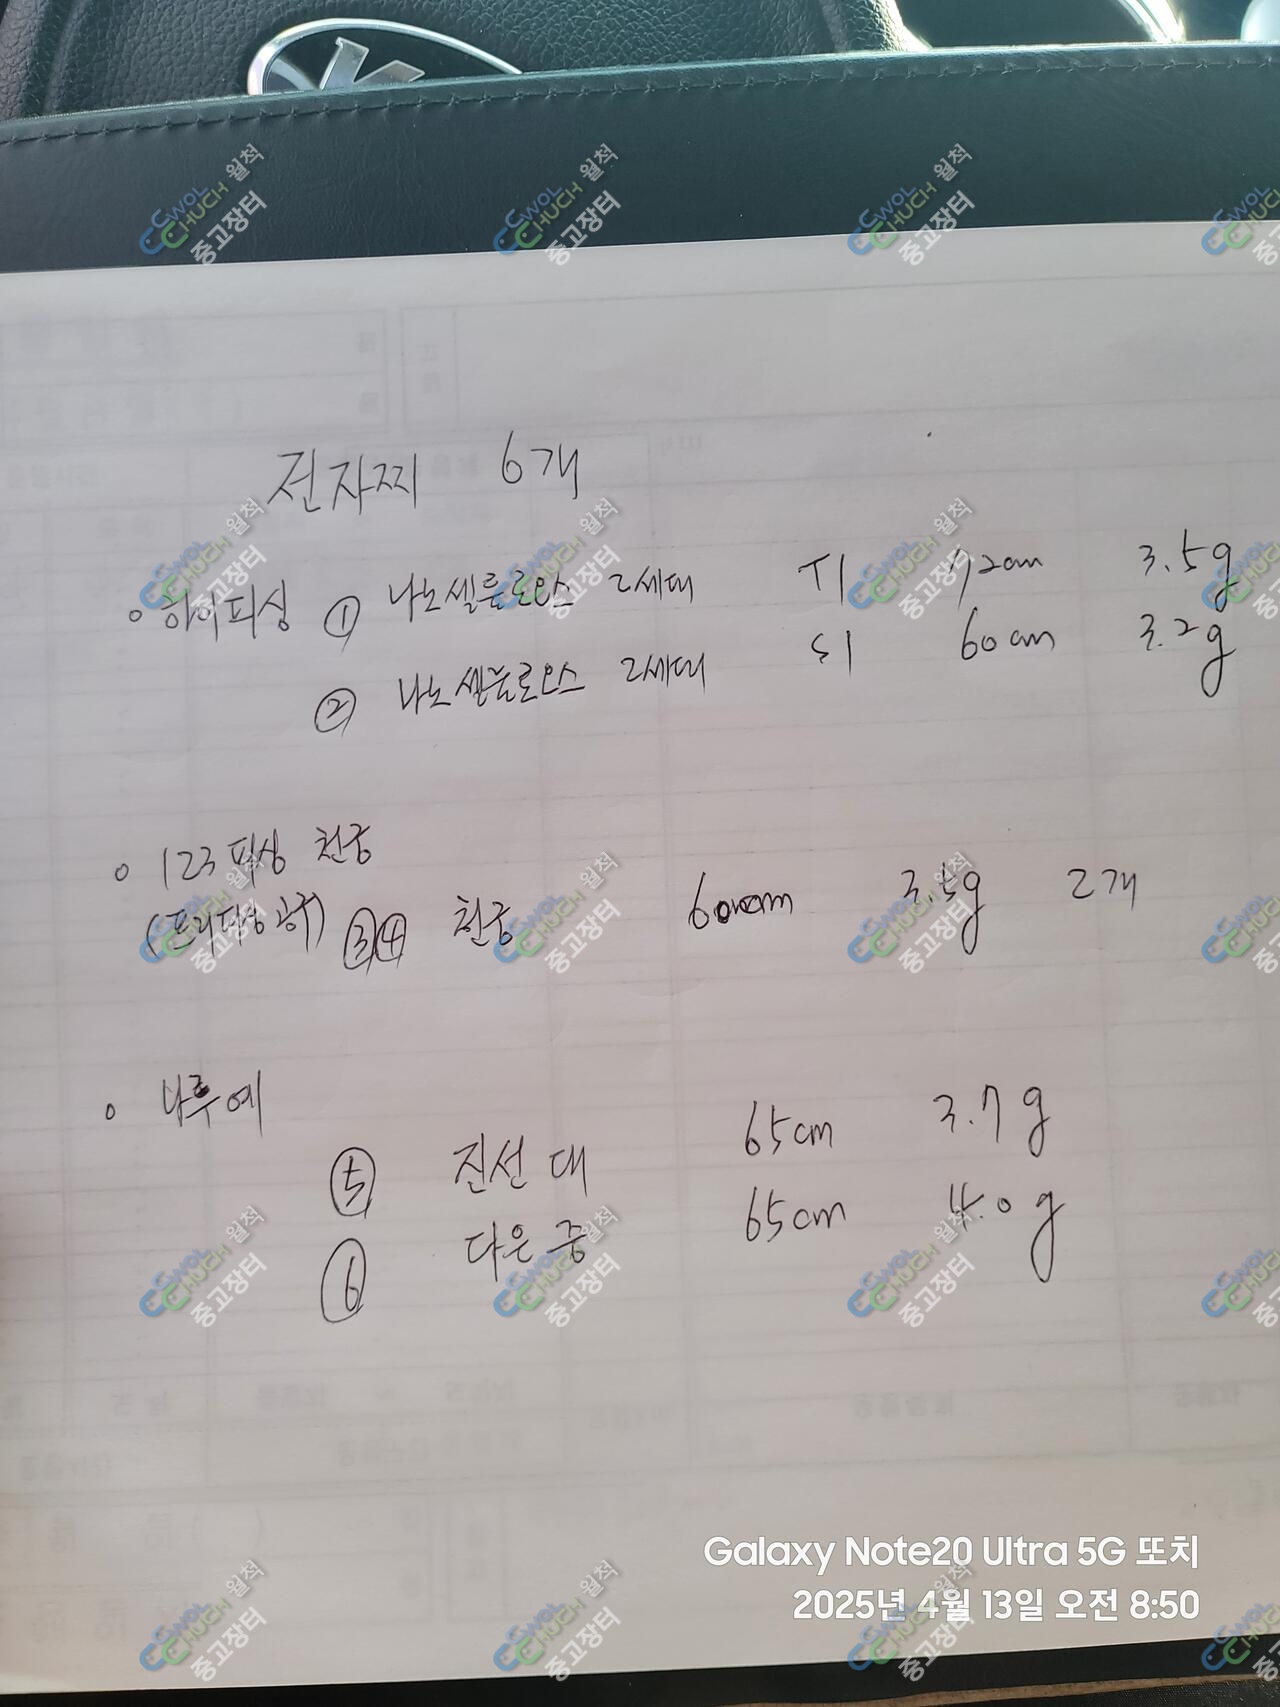 전자찌 6개
○ 하이피싱 ① 나노셀룰로오스 2세대 T1 72cm 3.5g
② 나노셀룰로오스 2세대 S1 60cm 3.2g
○ 123피싱 천궁
(프리피싱 공구) ③④ 천궁 60cm 3.5g 2개
○ 나루예
⑤ 진선 대 65cm 3.7g
⑥ 다온 중 65cm 4.0g
Galaxy Note20 Ultra 5G 또치
2025년 4월 13일 오전 8:50
CWOL CHUCH 월척 중고장터